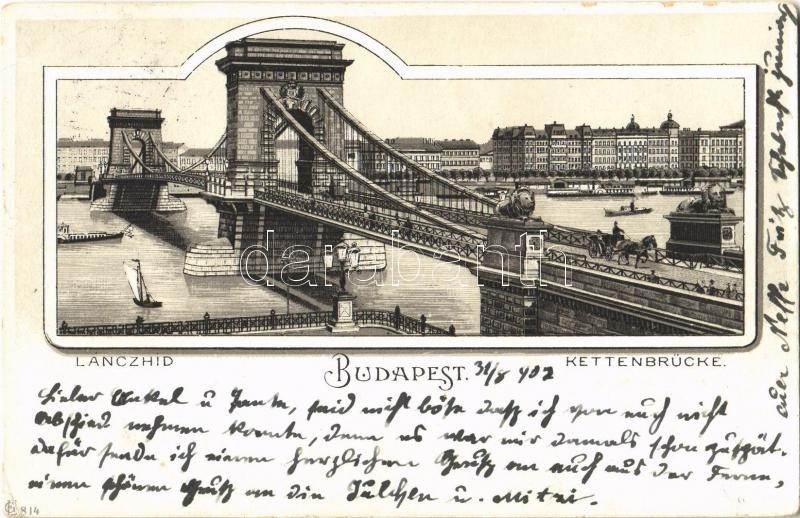 LÁNCZHID
BUDAPEST. 31/8 902
KETTENBRÜCKE.
Lieber Onkel u Tante, seid nicht böse dass ich von euch nicht
Abschied nehmen konnte, denn es war mir damals schon zu spät
dafür sende ich einen herzlichen Gruß an euch aus der Ferne,
einen schönen Gruß an die u. Mitzi.
euer Neffe Fritz junior
darabanth
814